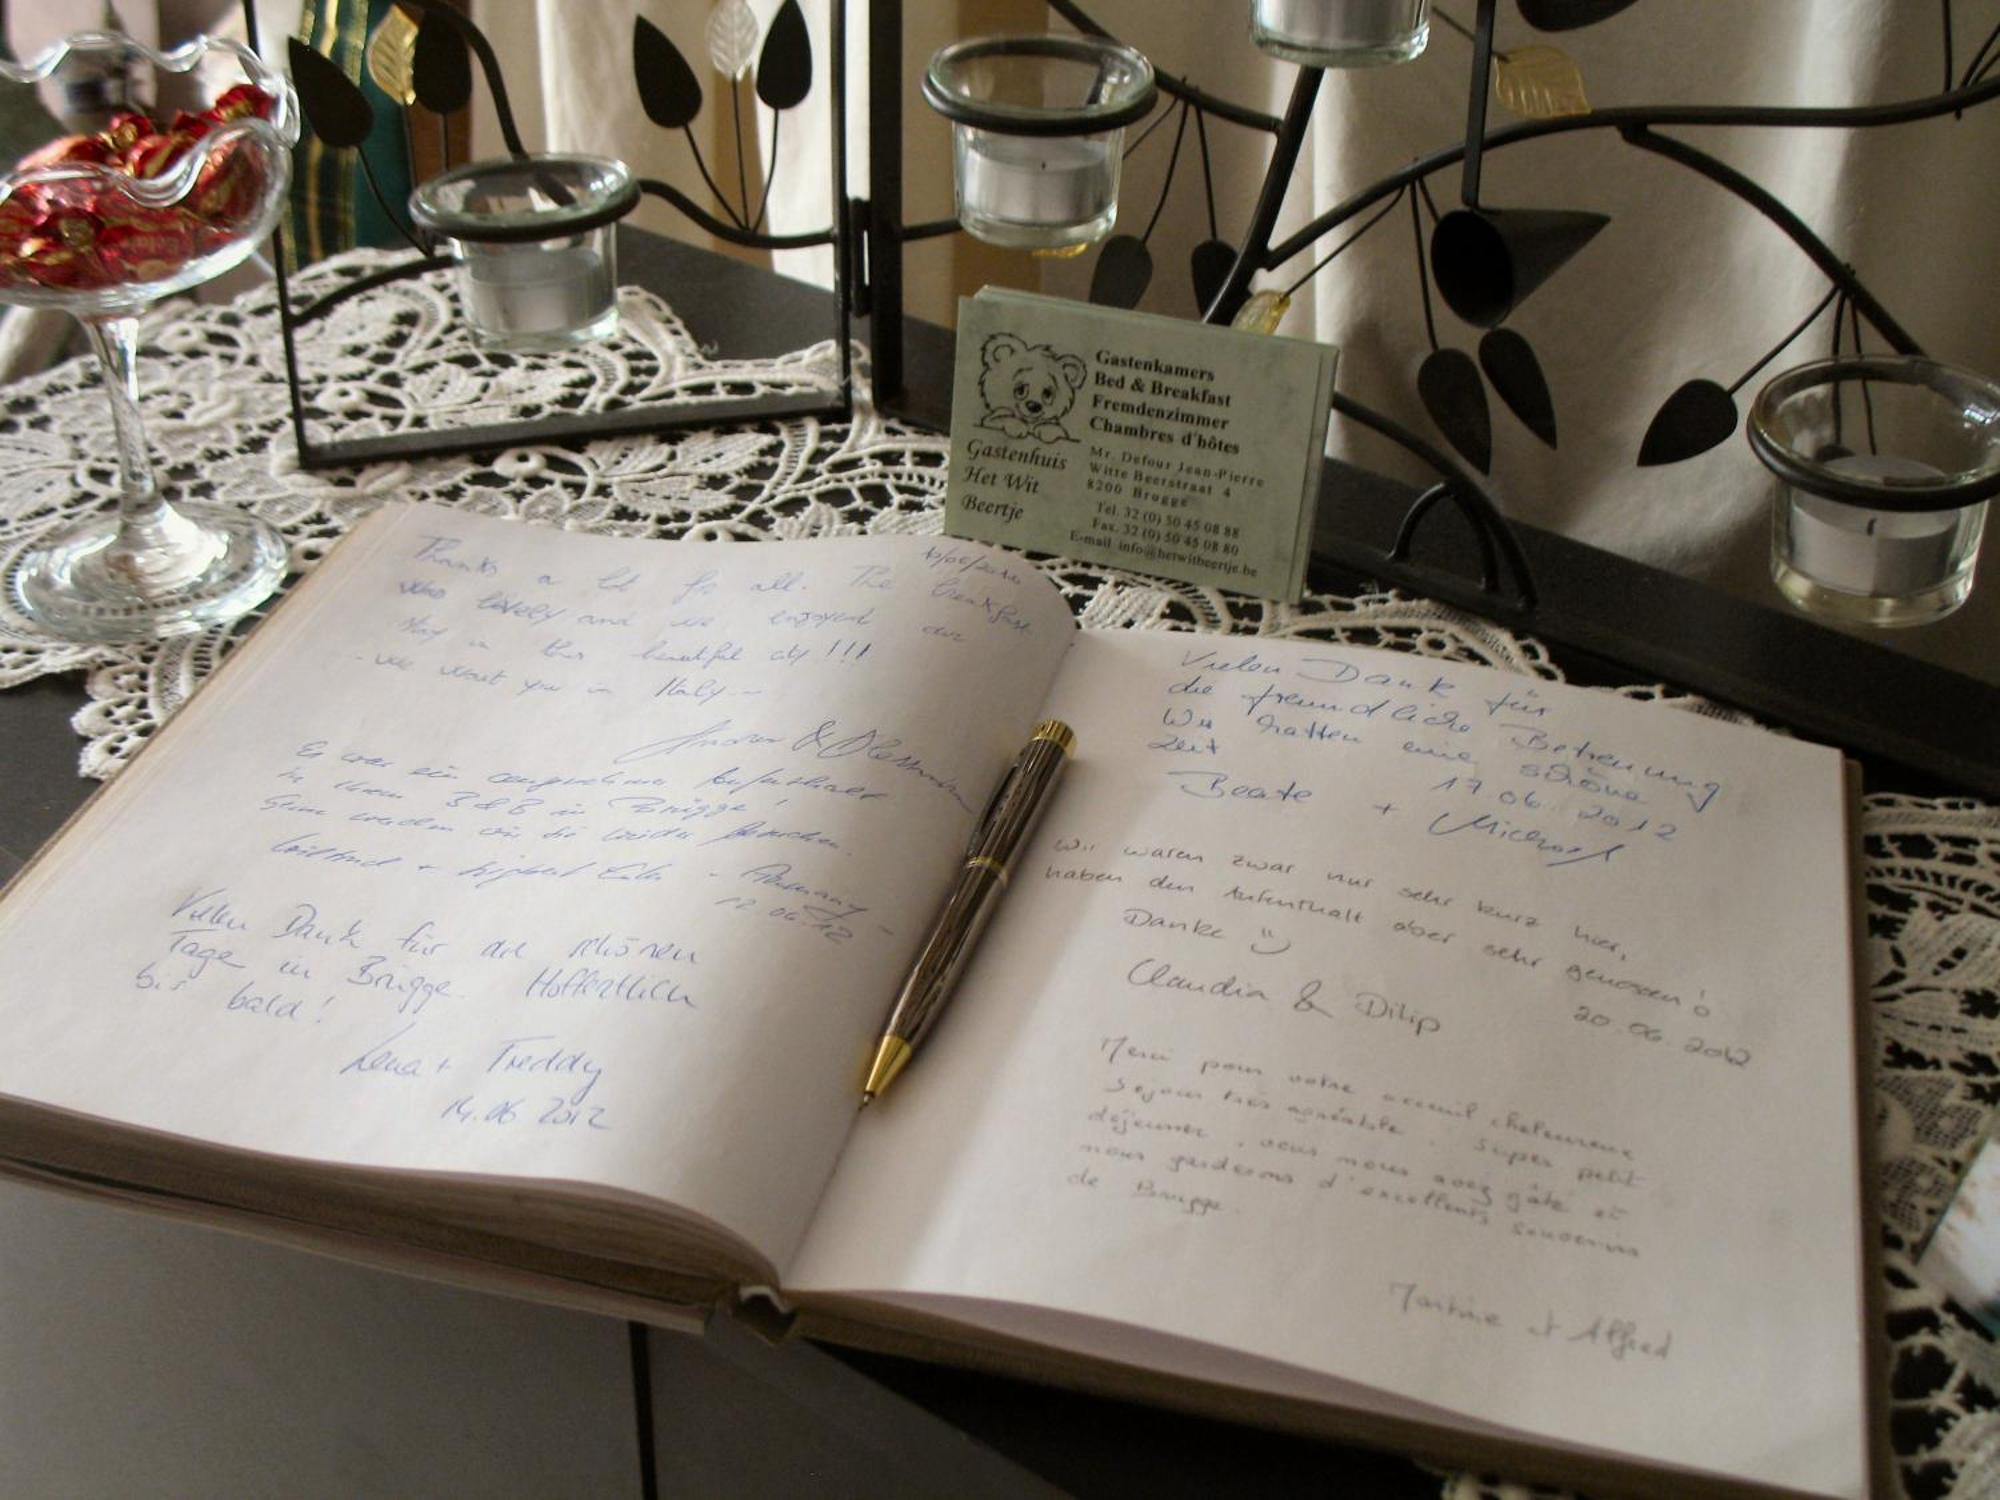 Gastenkamers
Bed & Breakfast
Fremdenzimmer
Chambres d'hôtes
Gastenhuis
Het Wit
Beertje
Mr. Defour Jean-Pierre
Witte Beerstraat 4
8200 Brugge
Tel. 32 (0) 50 45 08 88
Fax. 32 (0) 50 45 08 80
E-mail info@hetwitbeertje.be
Thanks a lot for all. The breakfast
was lovely and we enjoyed our
stay in this beautiful city!!!
- We wait you in Italy -
Es war ein angenehmer Aufenthalt
in Ihrem B&B in Brügge!
Gerne werden wir Sie wieder besuchen.
- Germany -
12.06.12
Vielen Dank für die schönen
Tage in Brügge. Hoffentlich
bis bald!
Lena + Freddy
14.06 2012
Vielen Dank für
die freundliche Betreuung
Wir hatten eine schöne
Zeit 17.06.2012
Beate + Michael
Wir waren zwar nur sehr kurz hier,
haben den Aufenthalt aber sehr genossen!
Danke
Claudia & Dilip 20.06.2012
Merci pour votre accueil chaleureux
Séjour très agréable. Super petit
déjeuner, vous nous avez gâté et
nous garderons d'excellents souvenirs
de Brugge.
Martine et Alfred